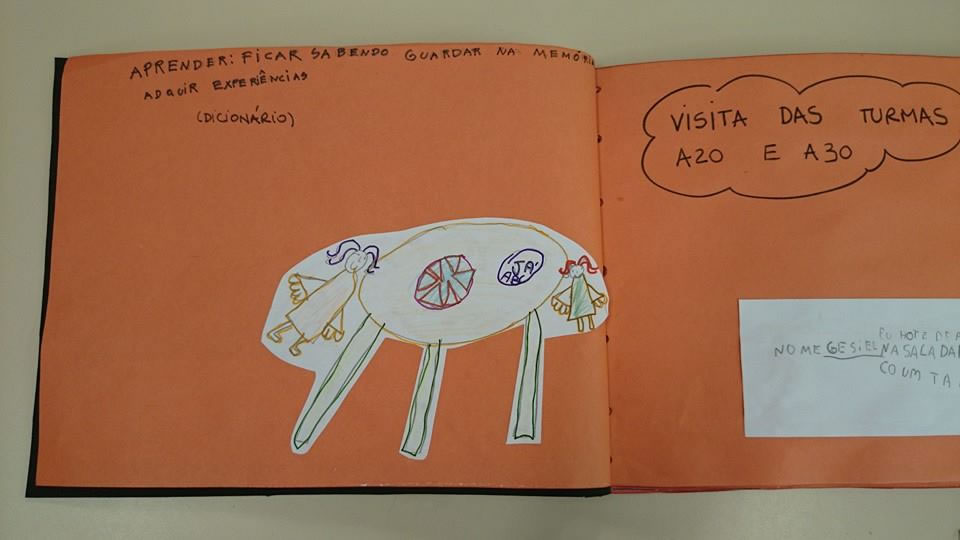 APRENDER: FICAR SABENDO GUARDAR NA MEMÓRIA
ADQUIR EXPERIÊNCIAS
(DICIONÁRIO)
JÁ
ABC
VISITA DAS TURMAS
A20 E A30
EU HOJE
NOME GESIEL NA SALA DA
CO UM TA